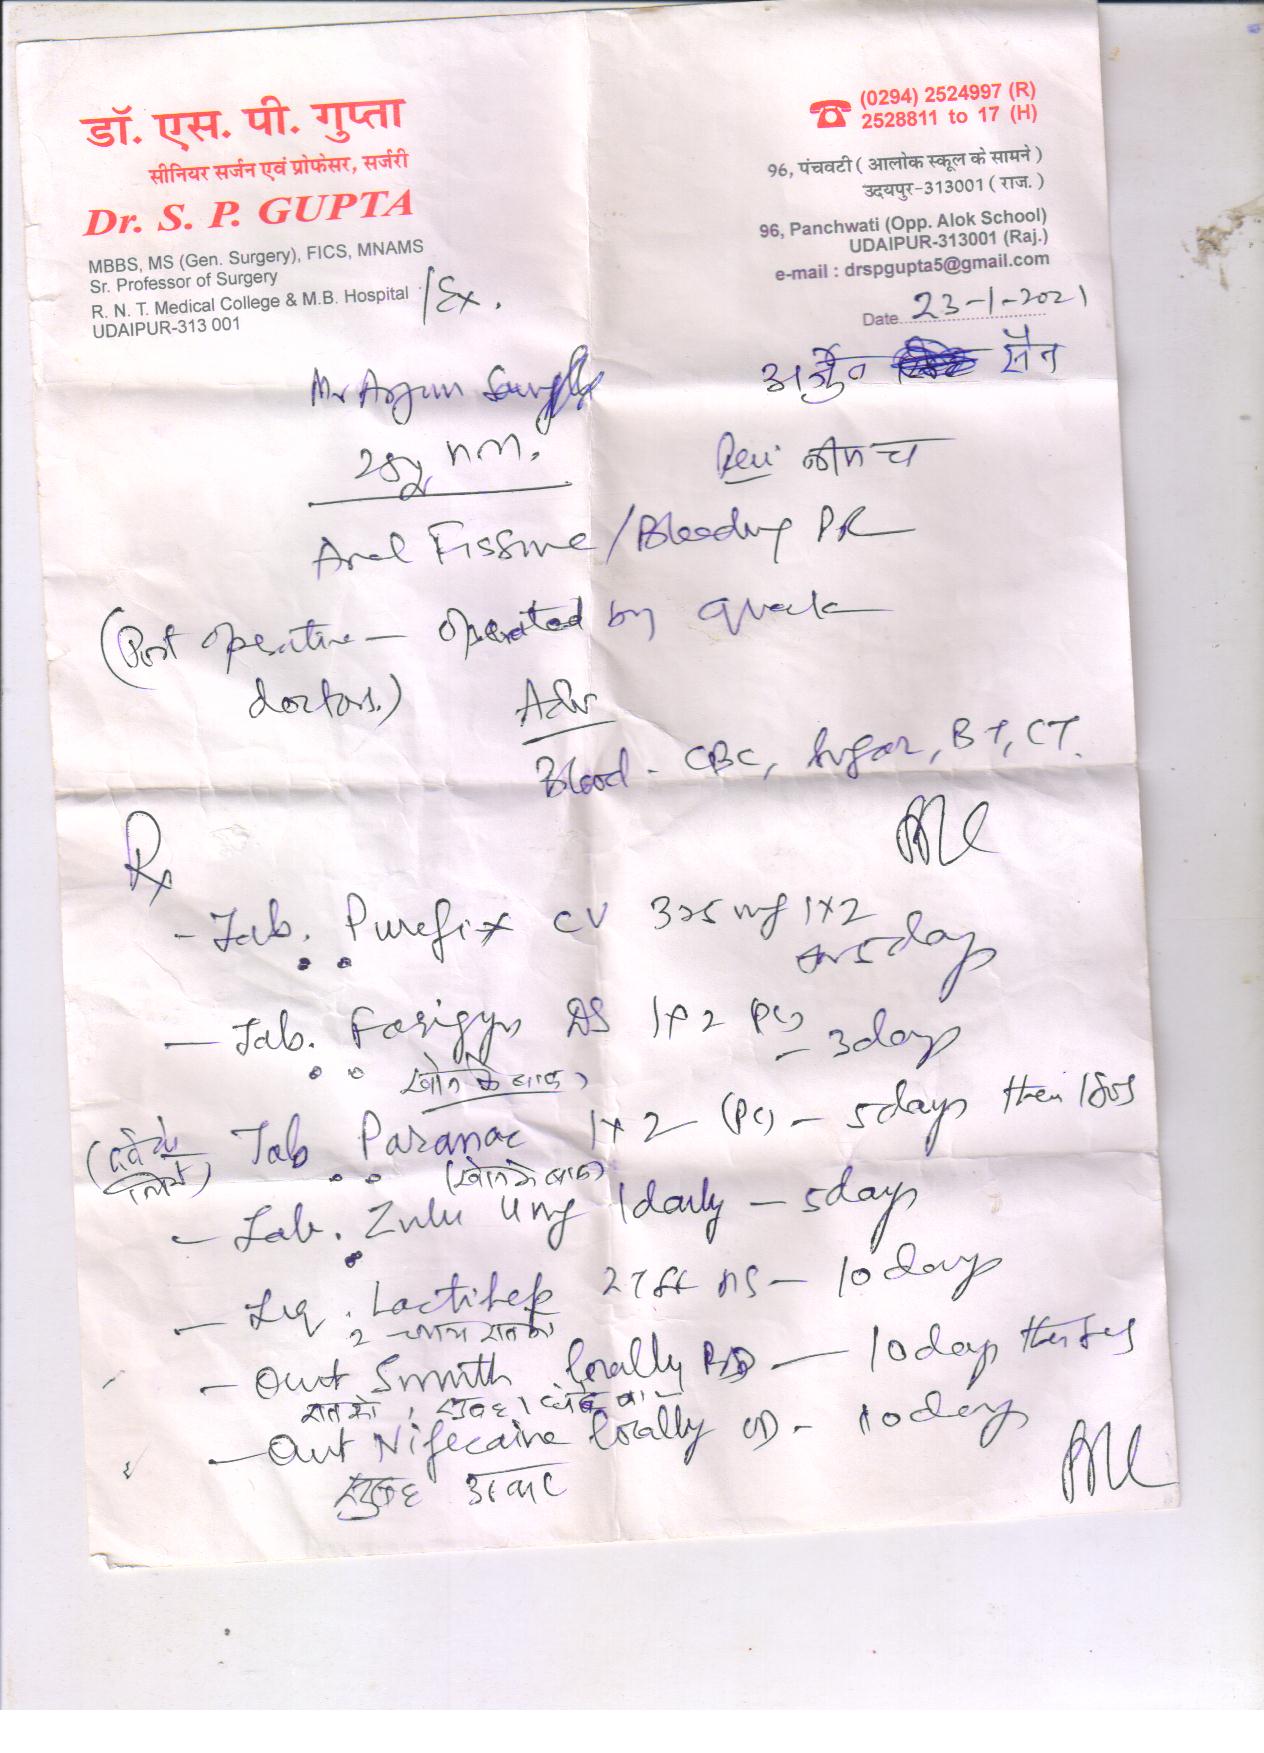 डॉ. एस. पी. गुप्ता
सीनियर सर्जन एवं प्रोफेसर, सर्जरी
Dr. S. P. GUPTA
MBBS, MS (Gen. Surgery), FICS, MNAMS
Sr. Professor of Surgery
R. N. T. Medical College & M.B. Hospital /Ex.
UDAIPUR-313 001
(0294) 2524997 (R)
2528811 to 17 (H)
96, पंचवटी ( आलोक स्कूल के सामने )
उदयपुर-313001 ( राज. )
96, Panchwati (Opp. Alok School)
UDAIPUR-313001 (Raj.)
e-mail : drspgupta5@gmail.com
Date 23-1-2021
Mr Arjun
अर्जुन सैन
नीमच
Anal Fissure / Bleeding PR
(Post operative - operated by quack
doctors.) Adv
Blood - CBC, Sugar, BT, CT.
Rx
- Tab. Purefix CV 325 mg 1x2
5 days
- Tab. Fasigyn DS 1x2 (PC) - 3 days
(खाने के बाद)
(दर्द के लिये) Tab. Paranac 1x2 - (PC) - 5 days then SOS
(खाने के बाद)
- Tab. Zulu 4 mg 1 daily - 5 days
- Liq. Lactihep 2 TSF HS - 10 days
2 चम्मच रात को
- Oint Smuth locally BD - 10 days then
रात को, सुबह
- Oint Nifecaine locally OD - 10 days
सुबह